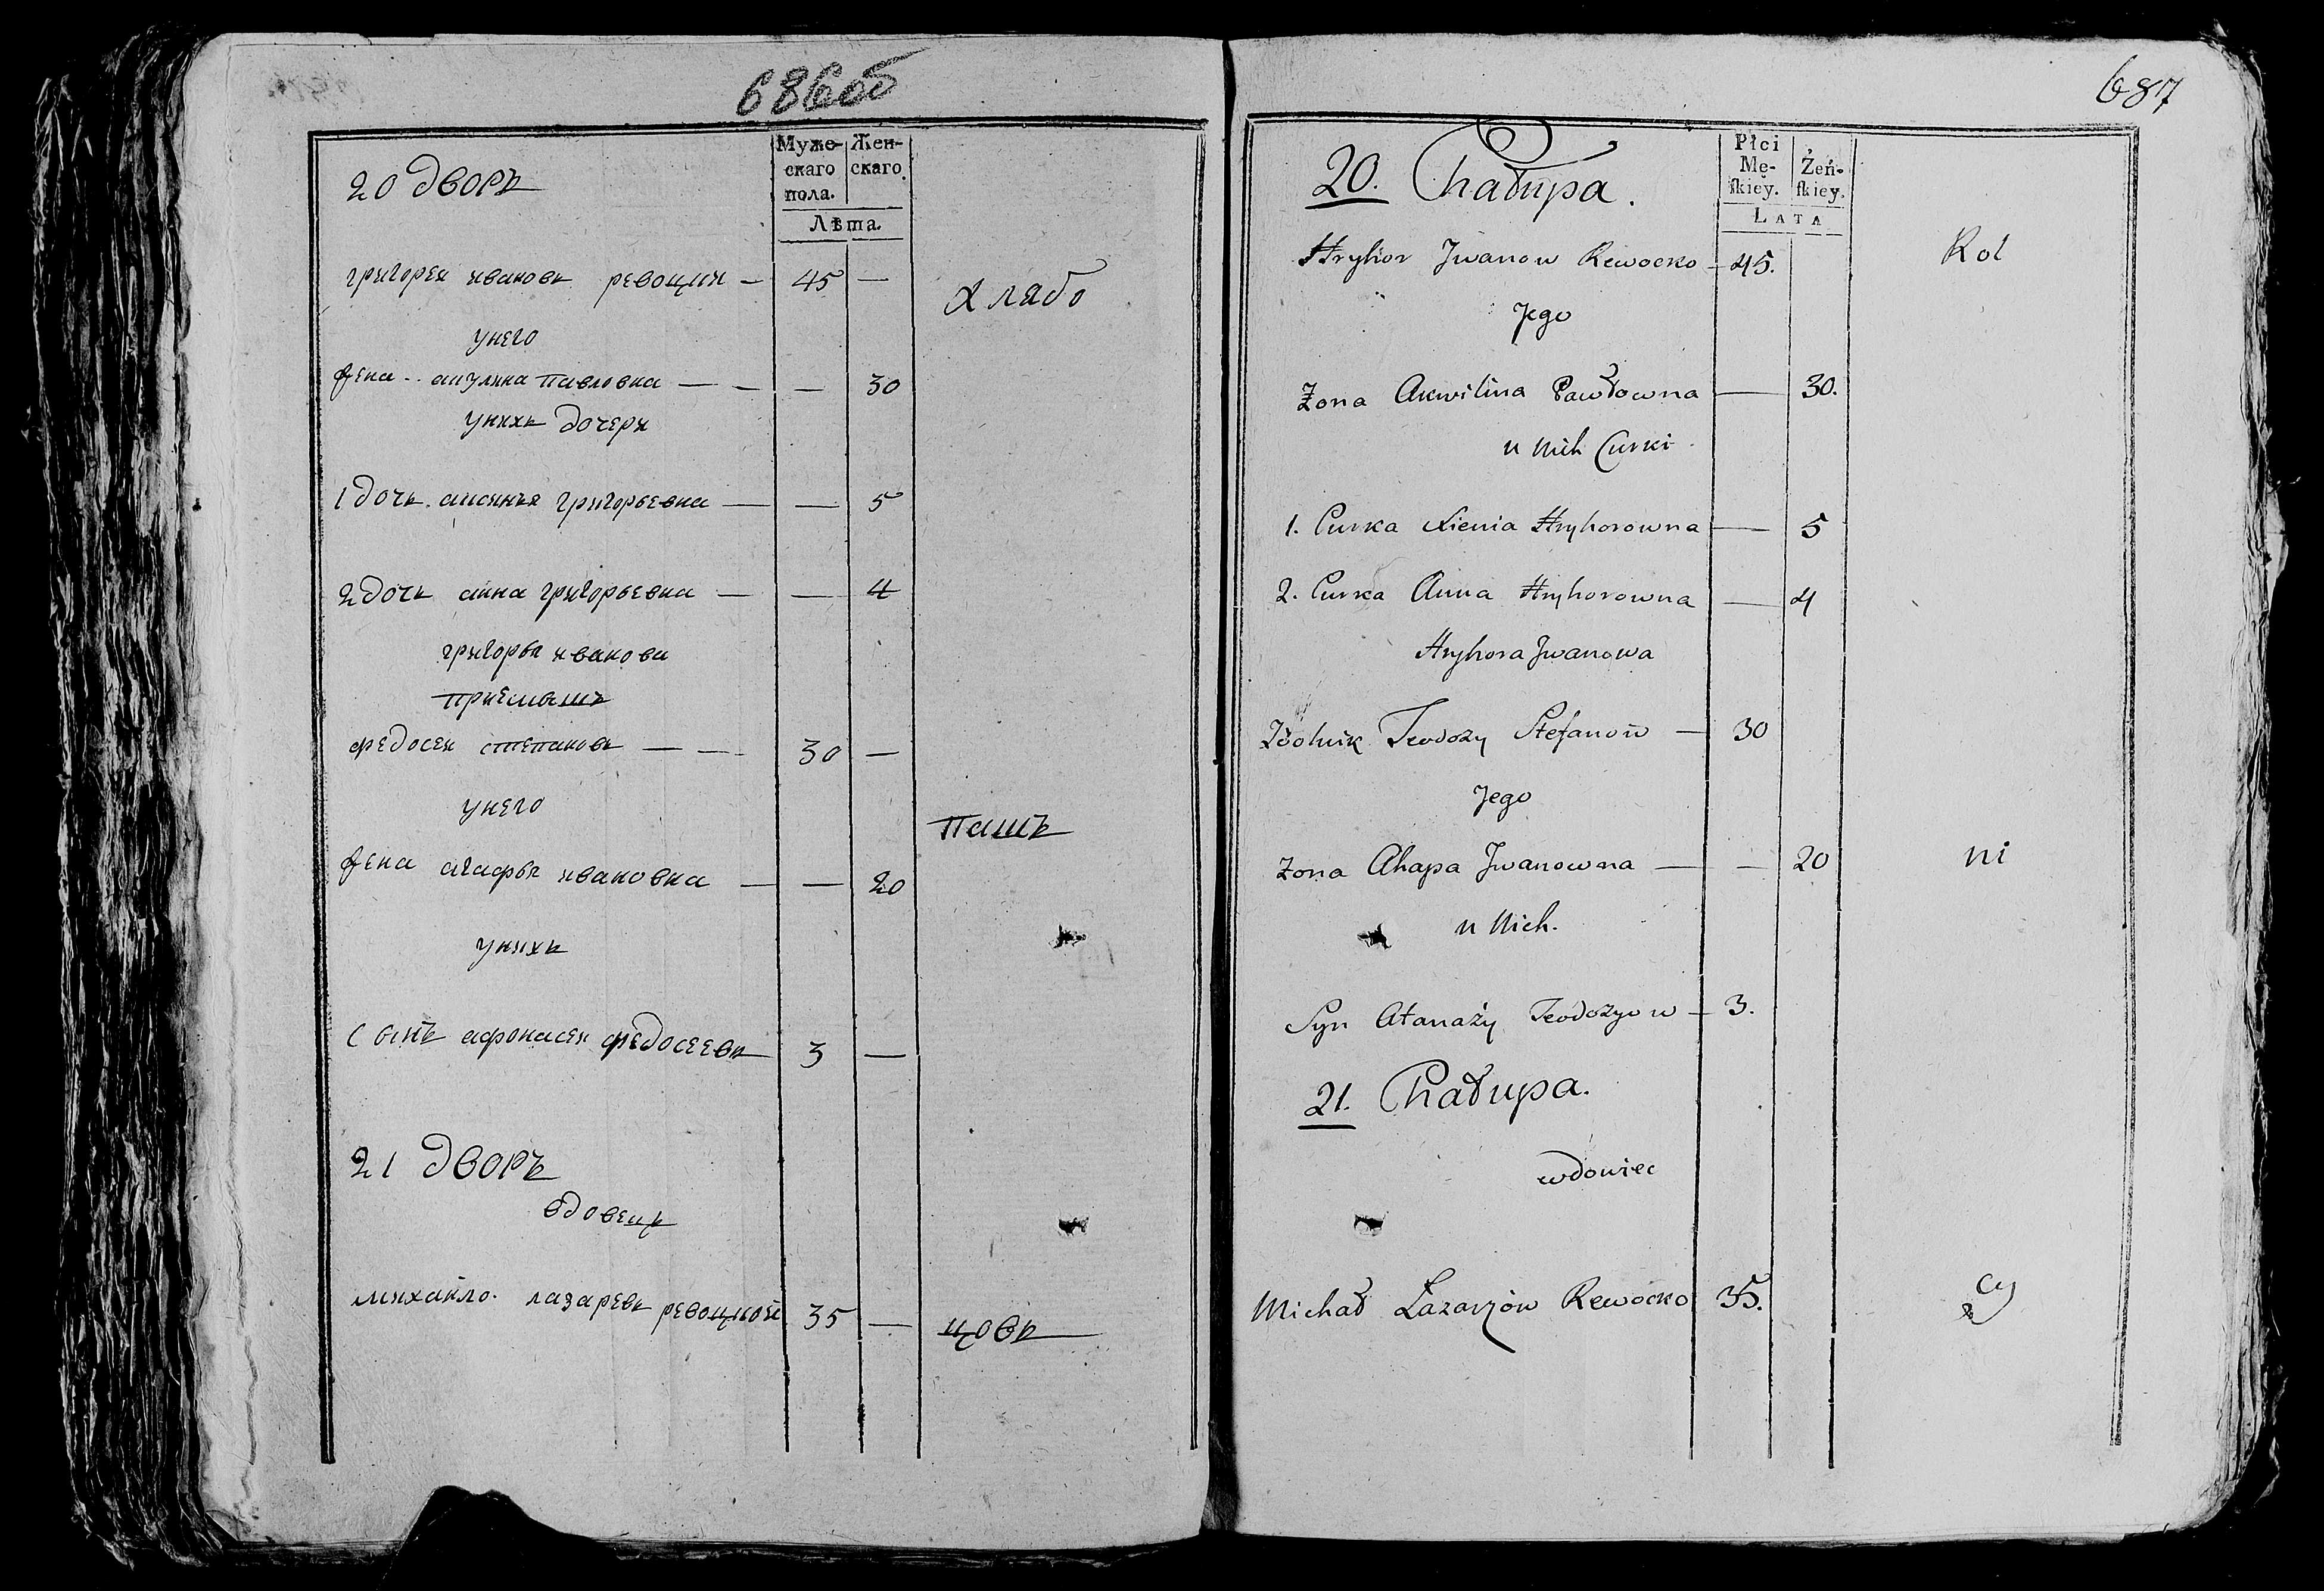 686об
Муже-
скаго
пола.
Жен-
скаго.
Лѣта.
20 дворъ
григорей ивановъ ревоцки — 45 —
хлѣбо
унего
жена акулина павловна — — — 30
унихъ дочери
1 дочь аксинья григорьевна — — 5
2 дочь анна григорьевна — — 4
григорья иванова
приемышъ
федосей степановъ — — 30 —
унего
пашъ
жена агафья ивановна — — 20
унихъ
сынъ афонасей федосеевъ 3 —
21 дворъ
вдовецъ
михайло лазаревъ ревоцкой 35 —
цовъ
687
Płci
Mę-
ſkiey.
Żeń-
ſkiey.
LATA
20. Chałupa.
Hryhor Jwanow Rewocko — 45.
Rol
Jego
Żona Akwilina Pawłowna — 30.
u Nich Curki
1. Curka Xienia Hryhorowna — 5
2. Curka Anna Hryhorowna — 4
Hryhora Jwanowa
Teodozy Stefanow — 30
Jego
Zona Ahapa Jwanowna — — 20
ni
u Nich.
Syn Atanazy Teodozyow — 3.
21. Chałupa.
wdowiec
Michał Łazarzow Rewocko 35.
cy